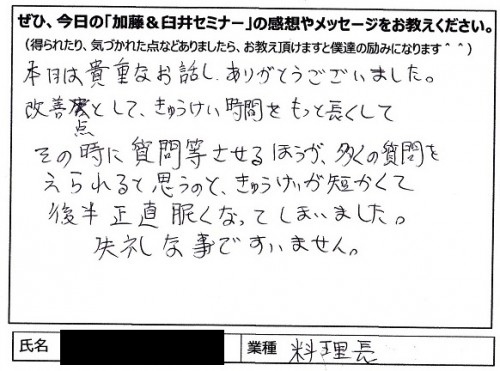 ぜひ、今日の「加藤&臼井セミナー」の感想やメッセージをお教えください。
(得られたり、気づかれた点などありましたら、お教え頂けますと僕達の励みになります^^)
本日は貴重なお話し、ありがとうございました。
改善点として、きゅうけい時間をもっと長くして
その時に質問等させるほうが、多くの質問を
えられると思うのと、きゅうけいが短かくて
後半正直眠くなってしまいました。
失礼な事ですいません。
氏名
業種 料理長